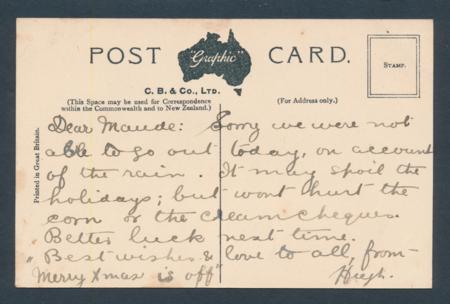 POST "Graphic" CARD.
STAMP.
C. B. & Co., LTD.
(This Space may be used for Correspondence
within the Commonwealth and to New Zealand.)
(For Address only.)
Printed in Great Britain.
Dear Maude: Sorry we were not
able to go out today, on account
of the rain. It may spoil the
holidays; but wont hurt the
corn or the cream cheques.
Better luck next time.
"Best wishes & love to all, from
Merry Xmas is off" Hugh.